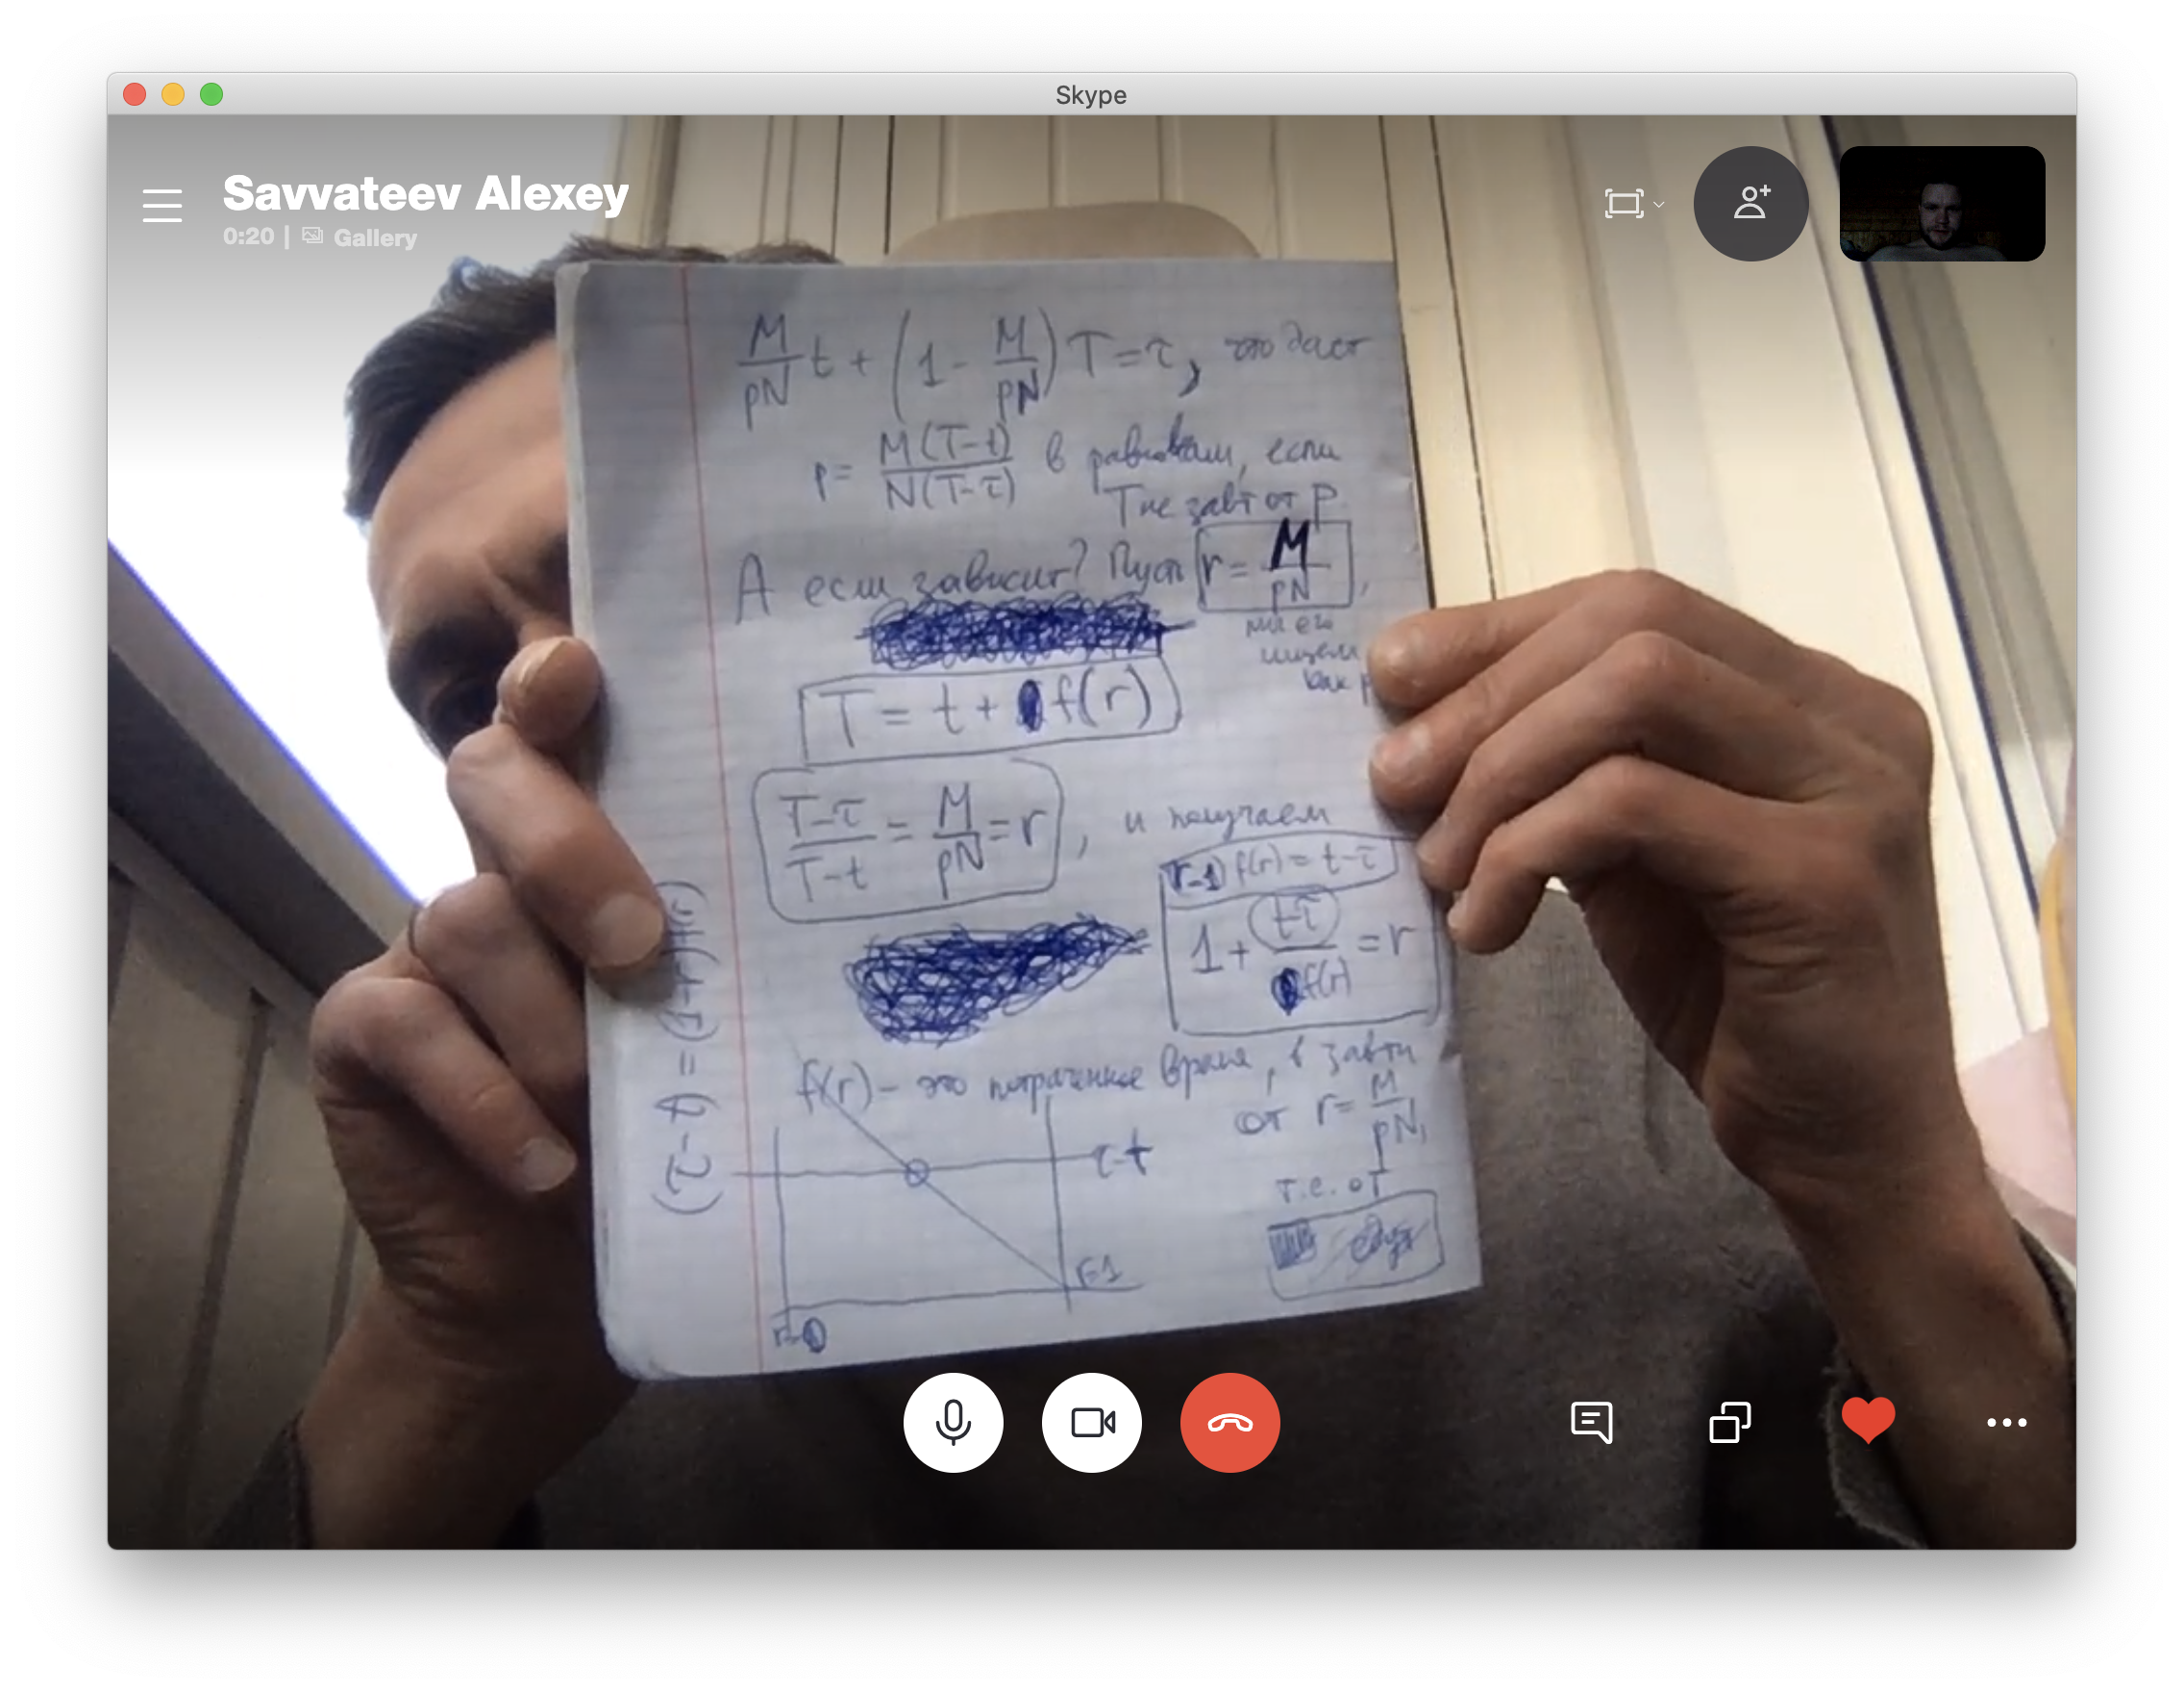 Skype
Savvateev Alexey
0:20 | Gallery
M/pN t + (1 - M/pN) T = τ, что даст
p = M(T-t)/N(T-τ) в равновесии, если
T не зав-т от p.
А если зависит? Пусть r = M/pN,
мы его
ищем
как p
T = t + f(r)
(T-τ)/(T-t) = M/pN = r, и получаем
(r-1) f(r) = t-τ
1 + (t-τ)/f(r) = r
(τ-t) = (1-r) f(r)
f(r) – это потраченное время, в зав-ти
от r = M/pN,
т.е. от
τ-t
r=1